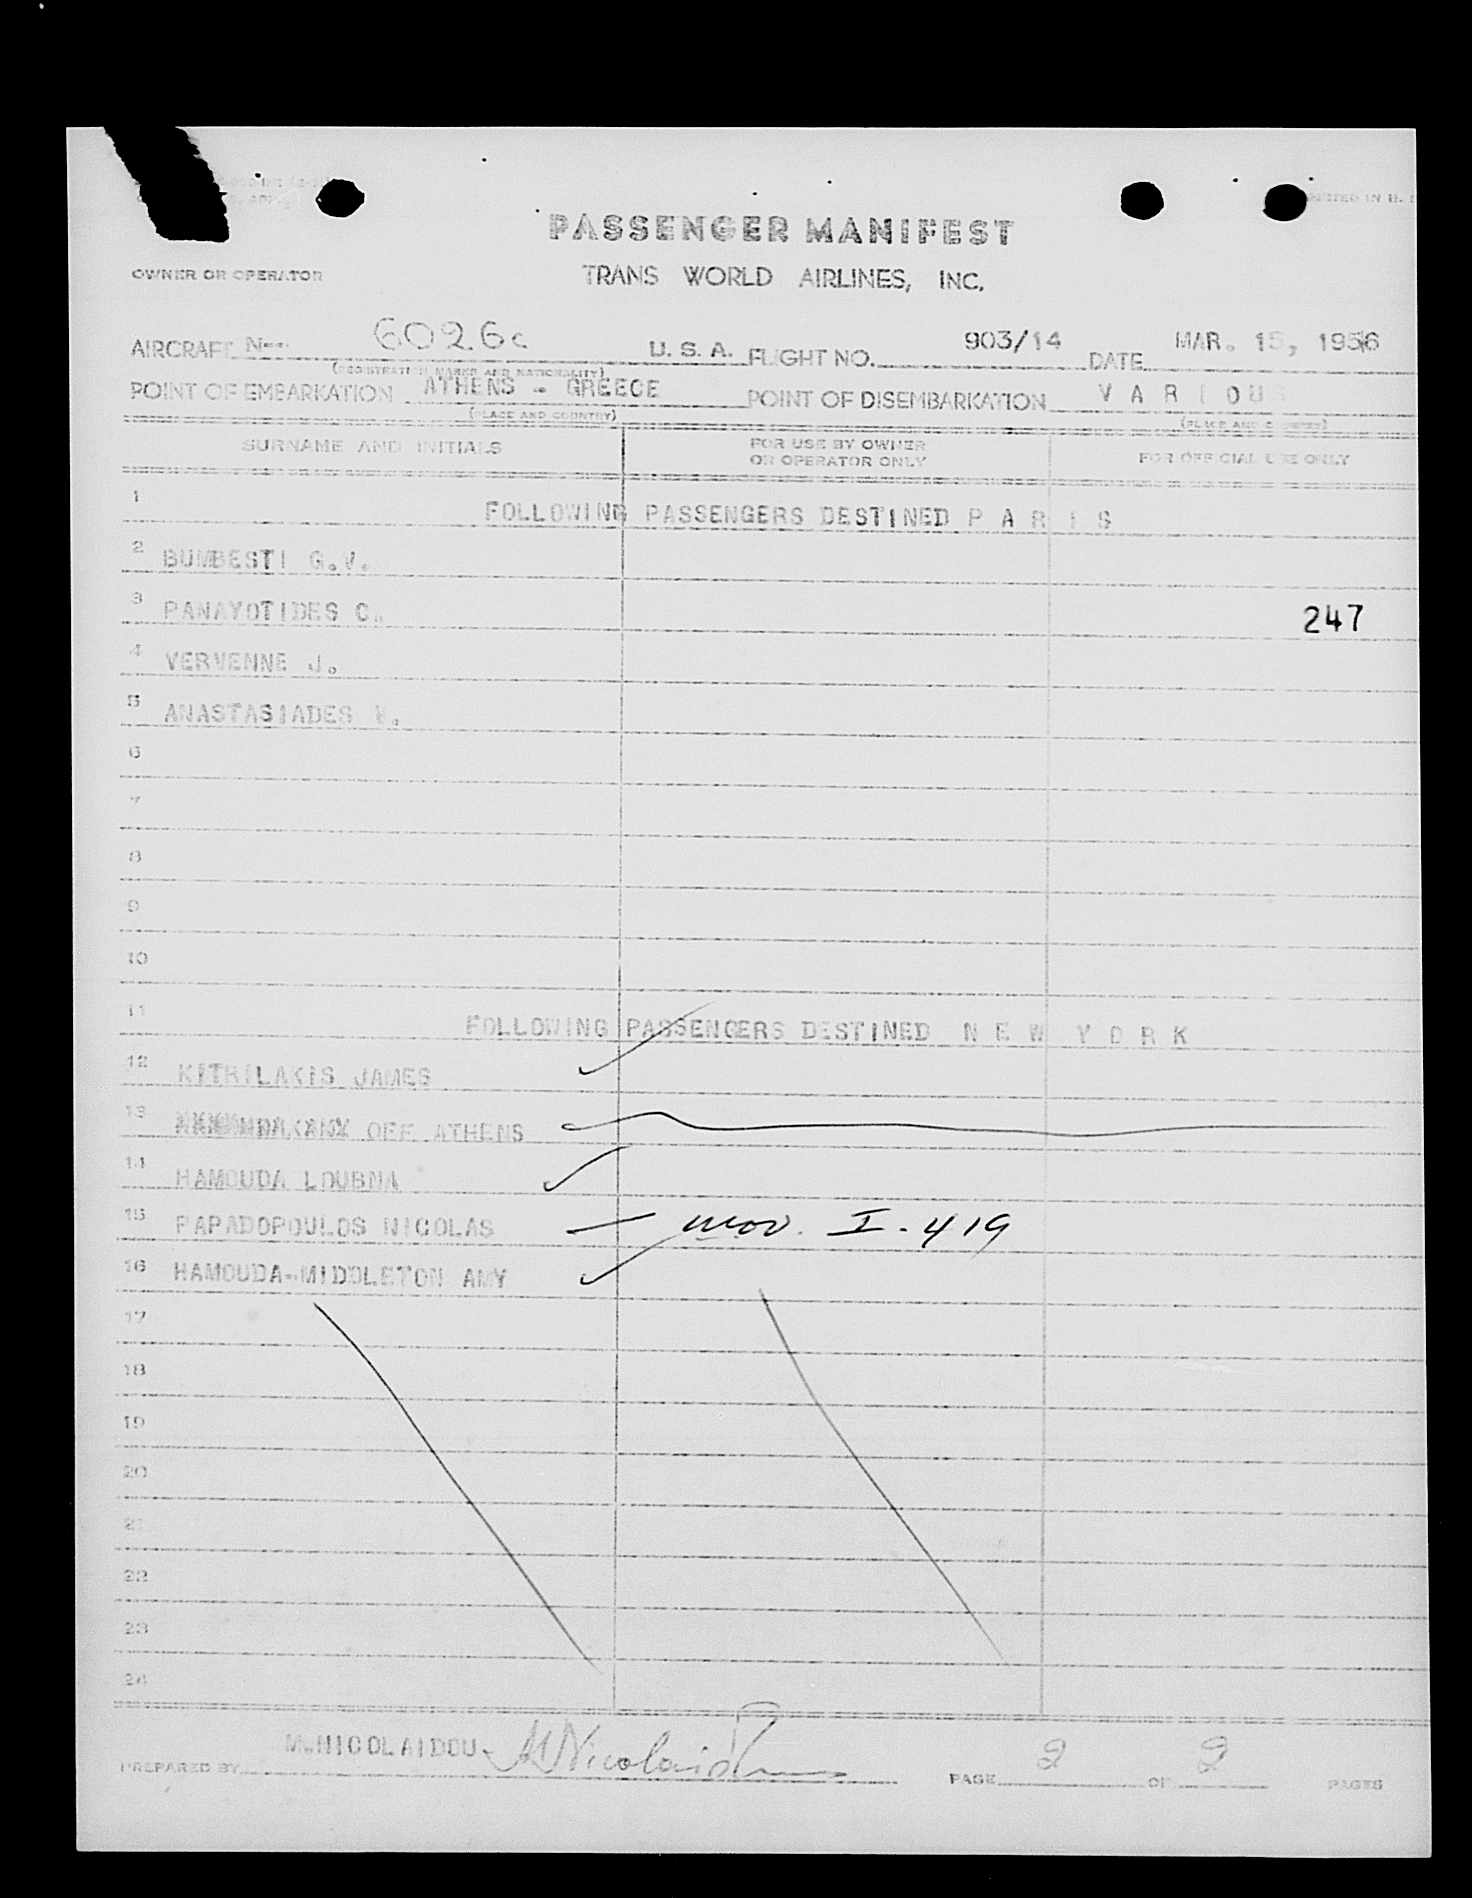 PASSENGER MANIFEST
OWNER OR OPERATOR TRANS WORLD AIRLINES, INC.
AIRCRAFT N-- 6026c U. S. A. FLIGHT NO. 903/14 DATE MAR. 15, 1956
(REGISTRATION MARKS AND NATIONALITY)
POINT OF EMBARKATION ATHENS - GREECE POINT OF DISEMBARKATION V A R I O U
(PLACE AND COUNTRY) (PLACE AND COUNTRY)
SURNAME AND INITIALS FOR USE BY OWNER OR OPERATOR ONLY FOR OFFICIAL USE ONLY
1 FOLLOWING PASSENGERS DESTINED P A R I S
2 BUMBESTI G.V.
3 PANAYOTIDES C. 247
4 VERVENNE J.
5 ANASTASIADES
6
7
8
9
10
11 FOLLOWING PASSENGERS DESTINED N E W Y O R K
12 KITRILAKIS JAMES
13 OFF ATHENS
14 HAMOUDA LOUBNA
15 PAPADOPOULOS NICOLAS I-419
16 HAMOUDA-MIDDLETON AMY
17
18
19
20
21
22
23
24
PREPARED BY M.NICOLAIDOU PAGE 2 OF 2 PAGES